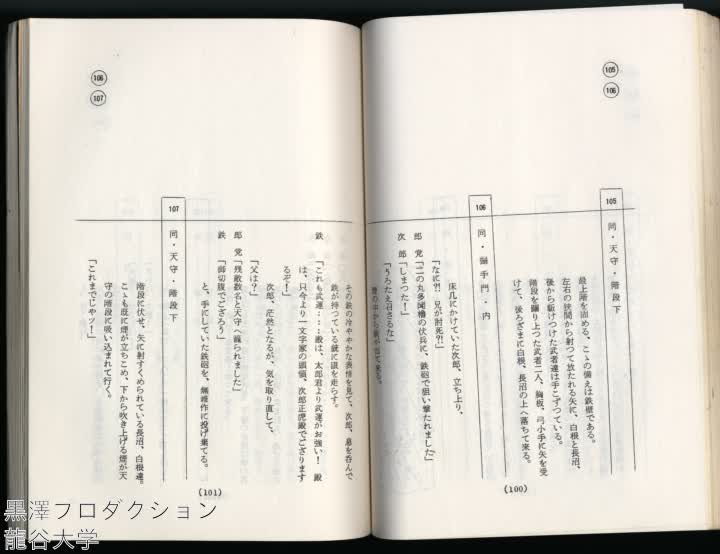 105
106
105
同・天守・階段下
最上階を固める、こゝの備えは鉄壁である。
左右の狭間から射って放たれる矢に、白根と長沼、
後から駈けつけた武者達は手こずっている。
階段を躍り上った武者二人、胸板、弓小手に矢を受
けて、後ろざまに白根、長沼の上へ落ちて来る。
106
同・搦手門・内
床几にかけていた次郎、立ち上り、
「なに?! 兄が討死?!」
郎党「二の丸多聞櫓の伏兵に、鉄砲で狙い撃たれました」
次郎「しまった!」
「うろたえ召さるな」
煙の中から鉄が出て来る。
(100)
106
107
その鉄の冷ややかな表情を見て、次郎、息を呑んで
鉄が持っている銃に眼を走らす。
鉄「これも武運……殿は、太郎君より武運がお強い! 殿
は、只今より一文字家の頭領、次郎正虎殿でござります
るぞ!」
次郎、茫然となるが、気を取り直して、
「父は?」
郎党「残敵数名と天守へ籠られました」
鉄「御切腹でござろう」
と、手にしていた鉄砲を、無雑作に投げ棄てる。
107
同・天守・階段下
階段に伏せ、矢に射すくめられている長沼、白根達。
こゝも既に煙が立ちこめ、下から吹き上げる煙が天
守の階段に吸い込まれて行く。
「これまでじやッ!」
(101)
黒澤プロダクション
龍谷大学